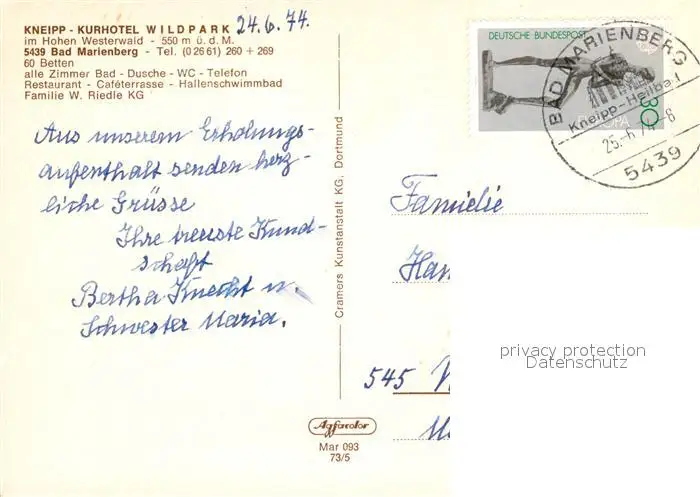 KNEIPP - KURHOTEL WILDPARK
im Hohen Westerwald - 550 m ü. d. M.
5439 Bad Marienberg - Tel. (0 26 61) 260 + 269
60 Betten
alle Zimmer Bad - Dusche - WC - Telefon
Restaurant - Caféterrasse - Hallenschwimmbad
Familie W. Riedle KG
24.6.74.
Aus unserem Erholungs-
aufenthalt senden herz-
liche Grüsse
Ihre treuste Kund-
schaft
Bertha Knecht u.
Schwester Maria.
Cramers Kunstanstalt KG, Dortmund
DEUTSCHE BUNDESPOST
30
EUROPA
BAD MARIENBERG
Kneipp-Heilbad
25.-6.74-8
5439
Familie
Han
545
privacy protection
Datenschutz
Agfacolor
Mar 093
73/5